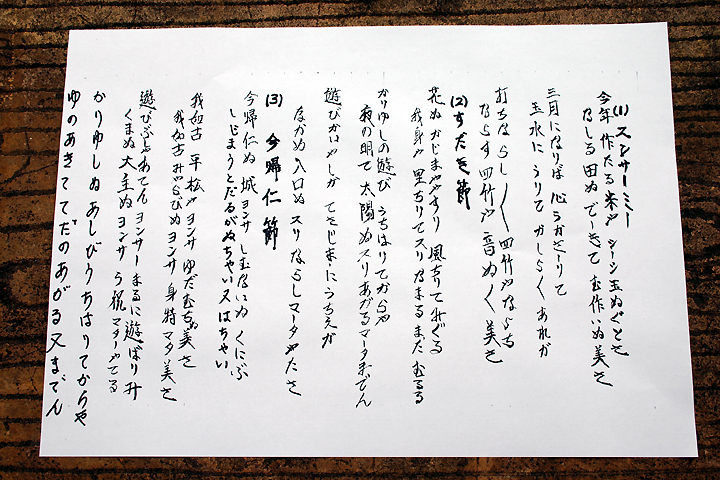 (1) スンサーミー
今年 作たる 米や シーシ玉ぬぐとさ
なしる 田ぬ でーきて む作いぬ美さ
三月になりば 心うかさーりて
玉水に うりて かしらく あれが
打ちならし〱 四竹や ならち
ならす 四竹や 音ぬく 美さ
(2) すだき節
花ぬ かじまややすり 風ちりて みぐる
我身や 里ちりてスリ なまる まだ むるる
かりゆしの遊び うちはりてからや
夜の明て 太陽ぬスリ あがるマータまでん
遊びかいやしが てさじまーにうちえが
なかぬ 入口ぬ スリ ならしマータやたさ
(3) 今帰仁節
今帰仁ぬ 城 ヨンサ しむないぬ くにぶ
しじまうとだるがぬちゃい 又はちゃい
我如古 平松や ヨンサ ゆだむちぬ美さ
我如古みやらびぬヨンサ 身持マタ美さ
遊びぶしゃあてん ヨンサー まるに遊ばりみ
くまぬ 大主ぬ ヨンサ う祝 マタやてる
かりゆしぬ あしび うちはりてからや
ゆのあきて てだのあがる 又までん